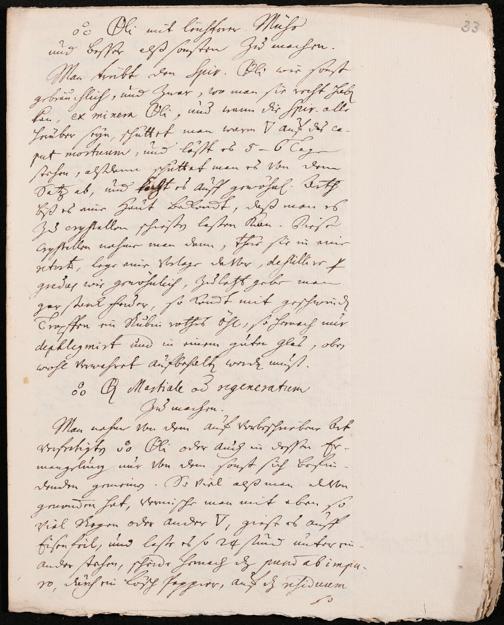 33
Oli mit leichterer Mühe
und besser alß sonsten zu machen.
Man treibt den Spir. Oli wie sonst
gebräuchlich, und zwar, wo man sie recht hab
kan, ex minera Oli, und wann die Spir. alle
herüber seyn, schüttet man warm auf das ca-
put mortuum, und läßt es 5 - 6 Tage
stehen, alßdann schüttet man es von dem
Satz ab, und es auff gewöhnl.
biß es eine Haut bekomt, daß man es
zu crystallen schießen laßen kan. Diese
Crystallen nehme man dann, thue sie in eine
retort, lege eine Vorlage davor, destillire p
gradus wie gewöhnlich, zuletzt gebe man
gar starck feuer, so komt mit geschwinden
Tropffen ein Rubin rothes Öhl, so hernach nur
dephlegmirt und in einem guten Glas, aber
wohl verwahret aufbehalten werden muß.
Martiale regeneratum
zu machen.
Man nehme von dem auf vorbeschriebene Art
verfertigten Oli oder auch in dessen Er-
mangelung nur von dem sonst sich befin-
denden gemeinen. So viel alß man davon
genommen hat, vermische man mit eben so
viel Regen oder ander, gieße es auff
Eisenfeil, und laße es so 24 stund unter ein-
ander stehen, scheide hernach das purum ab impu-
ro, durch ein Lösch pappier, auf das residuum
so